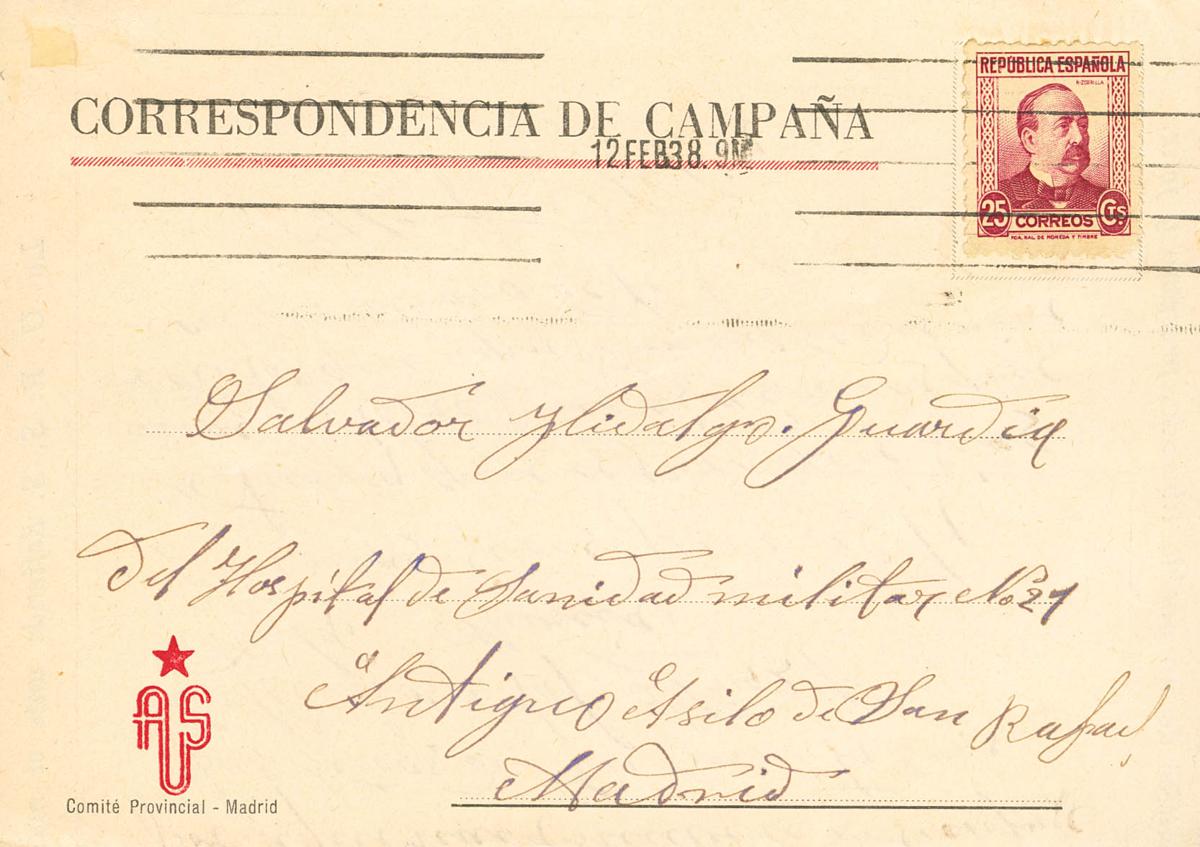 CORRESPONDENCIA DE CAMPAÑA
12 FEB 38. 9M
REPÚBLICA ESPAÑOLA
R·ZORRILLA
25 CORREOS Cts.
FCA. NAL. DE MONEDA Y TIMBRE
Salvador Hidalgo. Guardia
del Hospital de Sanidad militar No 21
Antiguo Asilo de San Rafael
Madrid
ASU
Comité Provincial - Madrid